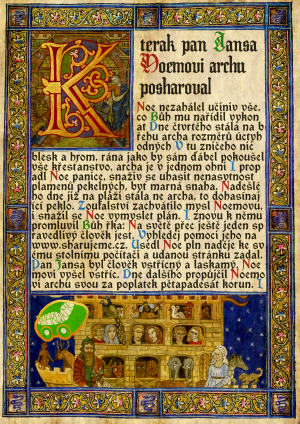 K
terak pan Jansa
Noemovi archu
posharoval
Noe nezahálel učiniv vše,
co Bůh mu nařídil vykon
at Dne čtvrtého stála na b
řehu archa rozměrů úctyh
odných V tu zničeho nic
blesk a hrom, rána jako by sám ďábel pokoušel
vše křesťanstvo, archa je v jednom ohni I prop
adl Noe panice, snaživ se uhasit nenasytnost
plamenů pekelných, byť marná snaha. Nadešlé
ho dne již na pláži stála ne archa, to dohasínaj
ící peklo. Zoufalství zachvátilo mysl Noemovu,
snažil se Noe vymyslet plán. I znovu k němu
promluvil Bůh řka: Na světě přec ještě jeden sp
ravedlivý člověk jest. Vyhledej pomoci jeho na
www.sharujeme.cz. Usedl Noe pln naděje ke sv
ému stolnímu počítači a udanou stránku zadal.
Pan Jansa byl člověk vstřícný a laskavý, Noe
movi vyšel vstříc. Dne dalšího propůjčil Noem
ovi archu svou za poplatek pětapadesát korun. I